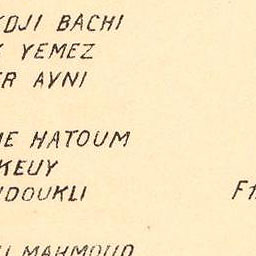 KDJI BACHI
YEMEZ
ER AYNI
HATOUM
KEUY
NDOUKLI
MAHMOUD